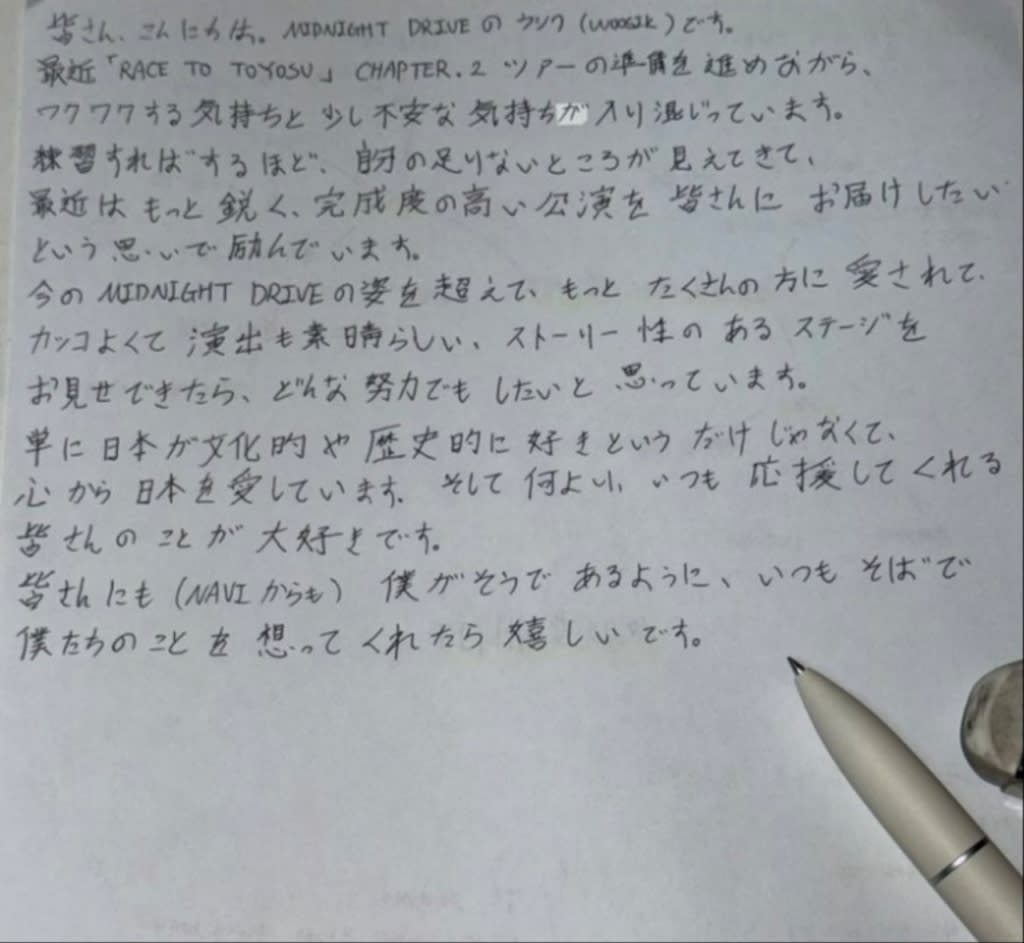 皆さん、こんにちは。MIDNIGHT DRIVEの ウソク (WOOSIK) です。
最近「RACE TO TOYOSU」CHAPTER.2 ツアーの準備を進めながら、
ワクワクする気持ちと 少し不安な 気持ちが 入り混じっています。
練習すればするほど、自分の足りないところが 見えてきて、
最近は もっと 鋭く、完成度の高い 公演を 皆さんに お届けしたい
という 思いで 励んでいます。
今の MIDNIGHT DRIVEの姿を超えて、もっと たくさんの 方に 愛されて、
カッコよくて 演出も素晴らしい、ストーリー性の ある ステージを
お見せできたら、どんな 努力でも したいと 思っています。
単に 日本が文化的や 歴史的に 好きという だけじゃなくて、
心から 日本を愛しています。そして 何より、いつも 応援してくれる
皆さんのことが 大好きです。
皆さんにも (NAVIからも) 僕がそうで あるように、いつも そばで
僕たちのことを 想って くれたら 嬉しいです。